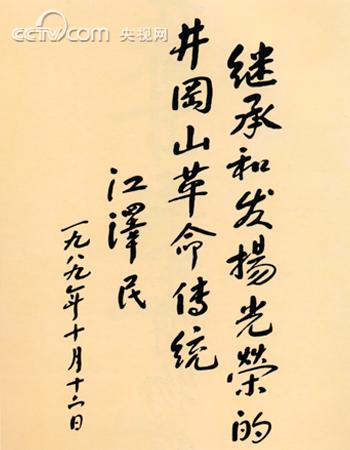 CCTV.com 央视网
继承和发揚光榮的
井岡山革命傳统
江澤民
一九八九年十月十六日